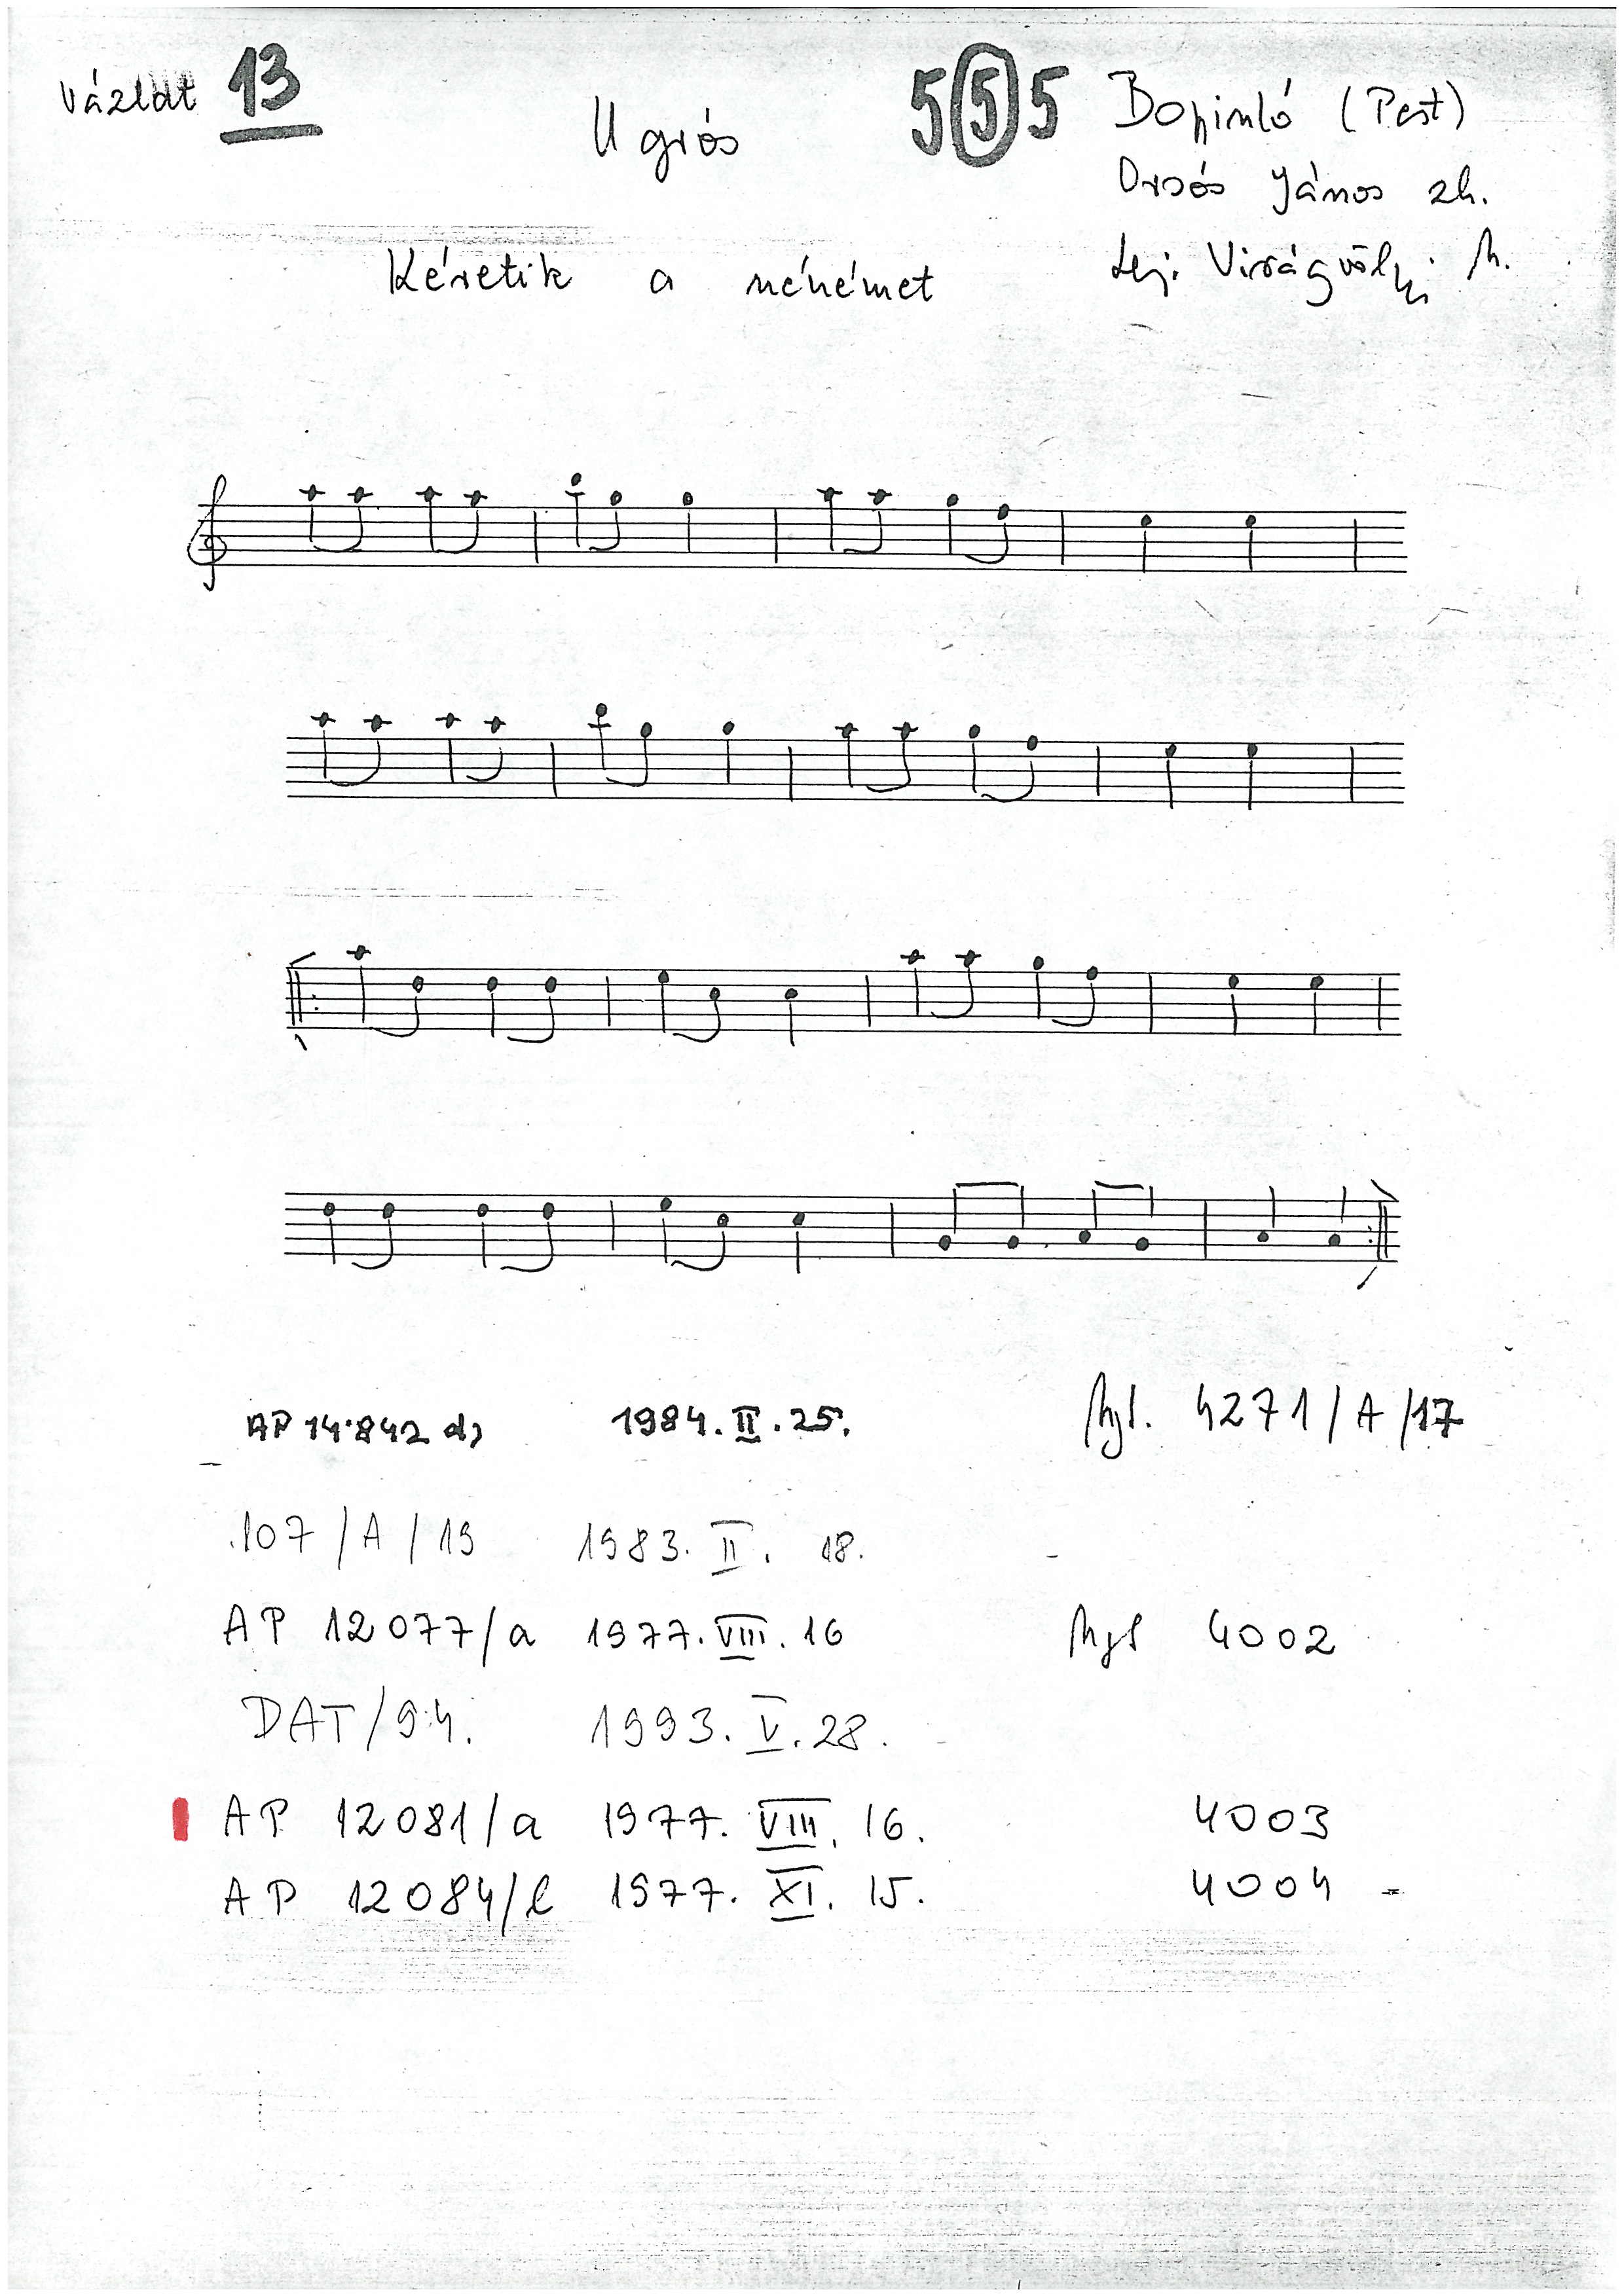 vázlat 13
Ugrós
5 5 5
(Pest)
Orsós János zh.
Lej. Virágvölgyi M.
Kéretik a nénémet
AP 14.842 d) 1984. II. 25. Mgt. 4271/A/17
107/A/19 1983. II. 18.
AP 12077/a 1977. VIII. 16 Mgt 4002
DAT/94. 1993. V. 28.
AP 12081/a 1977. VIII. 16. 4003
AP 12084/l 1977. XI. 15. 4004